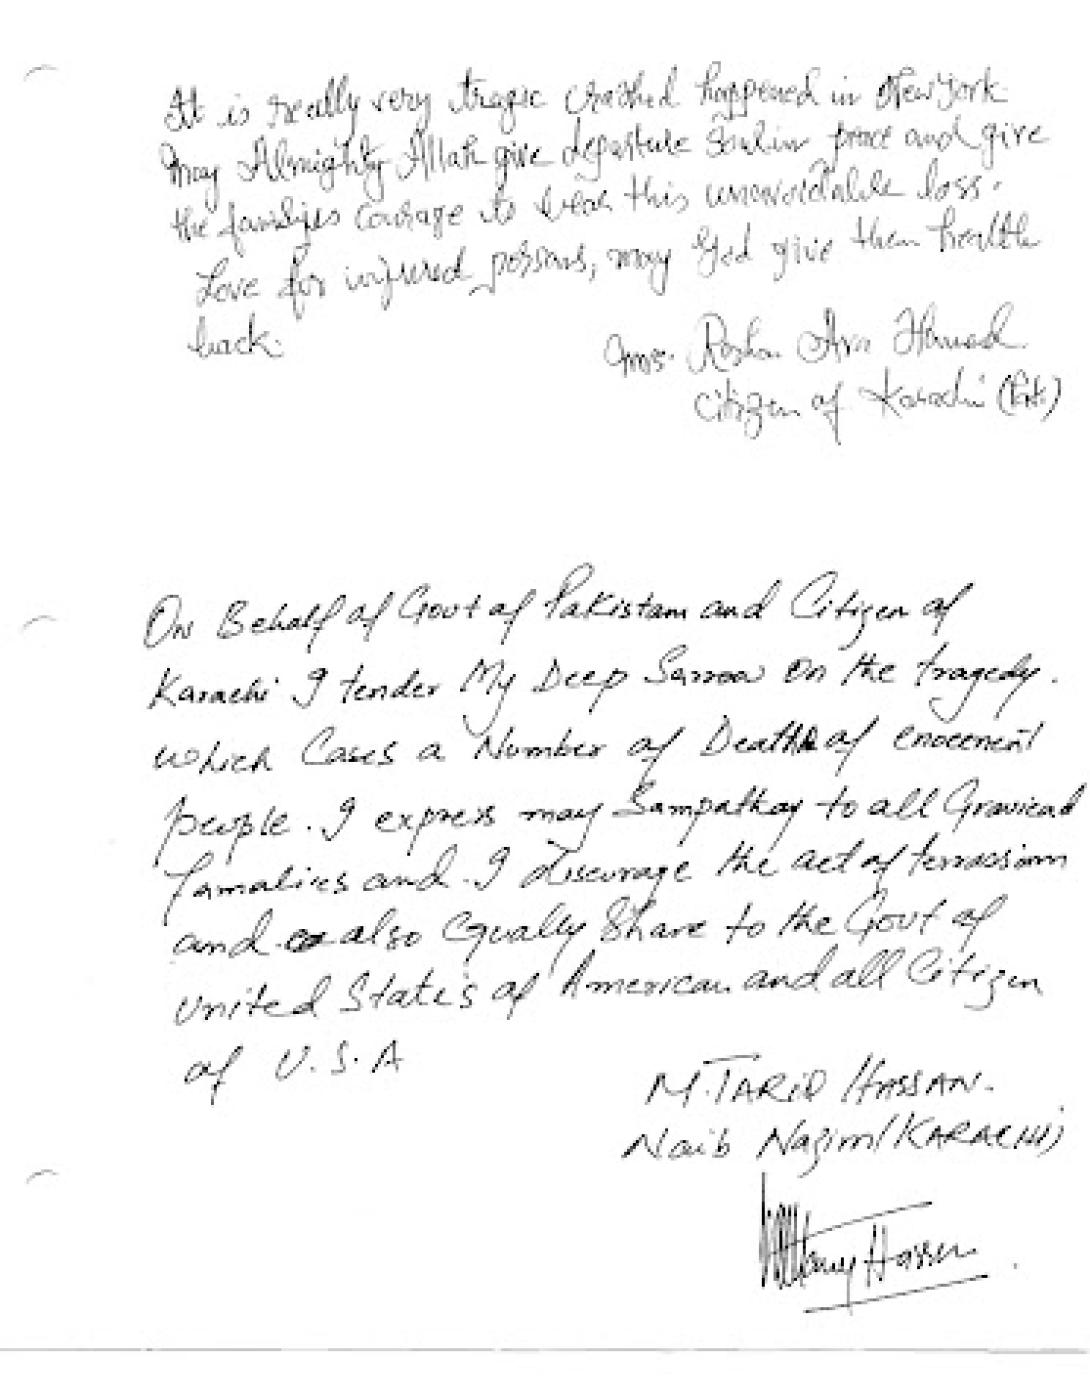 It is really very tragic crashed happened in New York
May Almighty Allah give departure soul in peace and give
the families courage to bear this unavoidable loss.
Love for injured persons, may God give them health
back.
Mrs. Roshan Ara Hamed
Citizen of Karachi (Pak.)
On Behalf of Govt of Pakistan and Citizen of
Karachi I tender My Deep Sarrow on the tragedy.
which Cases a Number of Death of enocenent
people. I express may Sampathay to all Gravicad
famalies and I discurage the act of terrassism
and also Equally Share to the Govt of
United States of American and all Citizen
of U.S.A
M. TARIQ HASSAN.
Naib Nazim (KARACHI)
Hassan